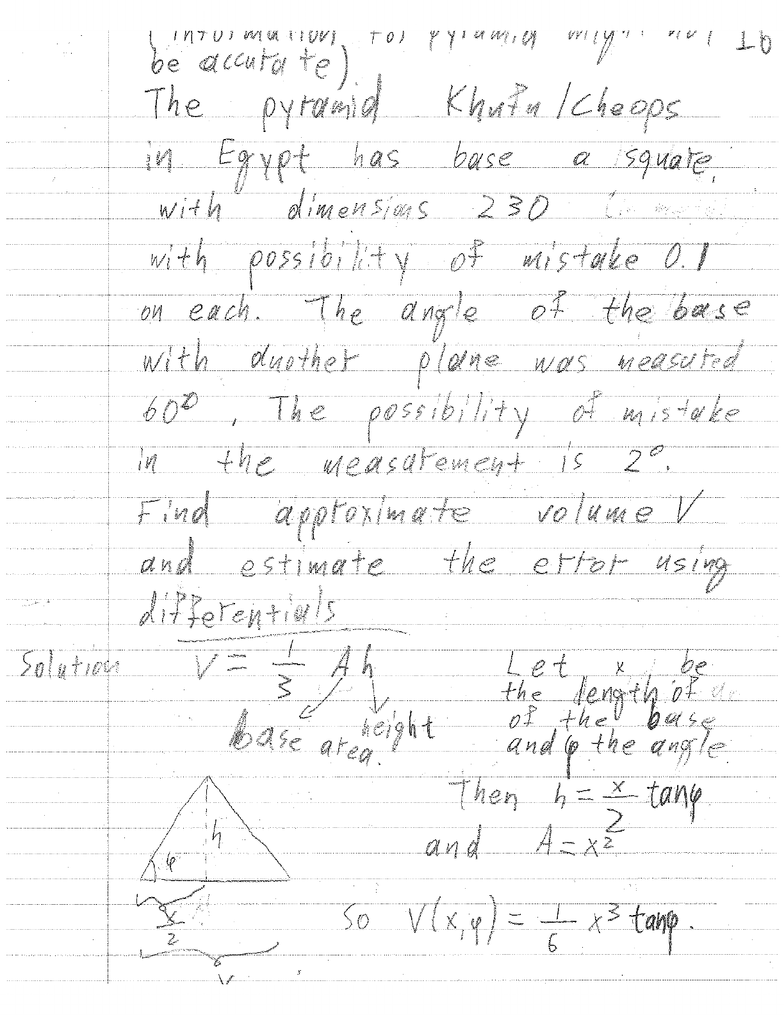 be accurate)
The pyramid Khufu/Cheops
in Egypt has base a square,
with dimensions 230
with possibility of mistake 0.1
on each. The angle of the base
with another plane was measured
60°, The possibility of mistake
in the measurement is 2°.
Find approximate volume V
and estimate the error using
differentials
Solution V = 1/3 A h
base area. height
Let x be
the length of
of the base
and φ the angle
Then h = x/2 tanφ
and A = x²
h
φ
x/2
So V(x,φ) = 1/6 x³ tanφ.